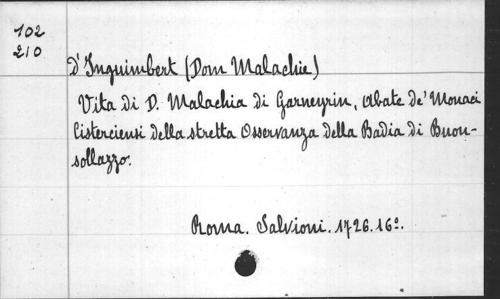 102
210
D'Inguimbert (Dom Malachie)
Vita di D. Malachia di Garneyrin, Abate de' Monaci
Cisterciensi della stretta Osservanza della Badia di Buon-
sollazzo.
Roma. Salvioni. 1726. 16º.